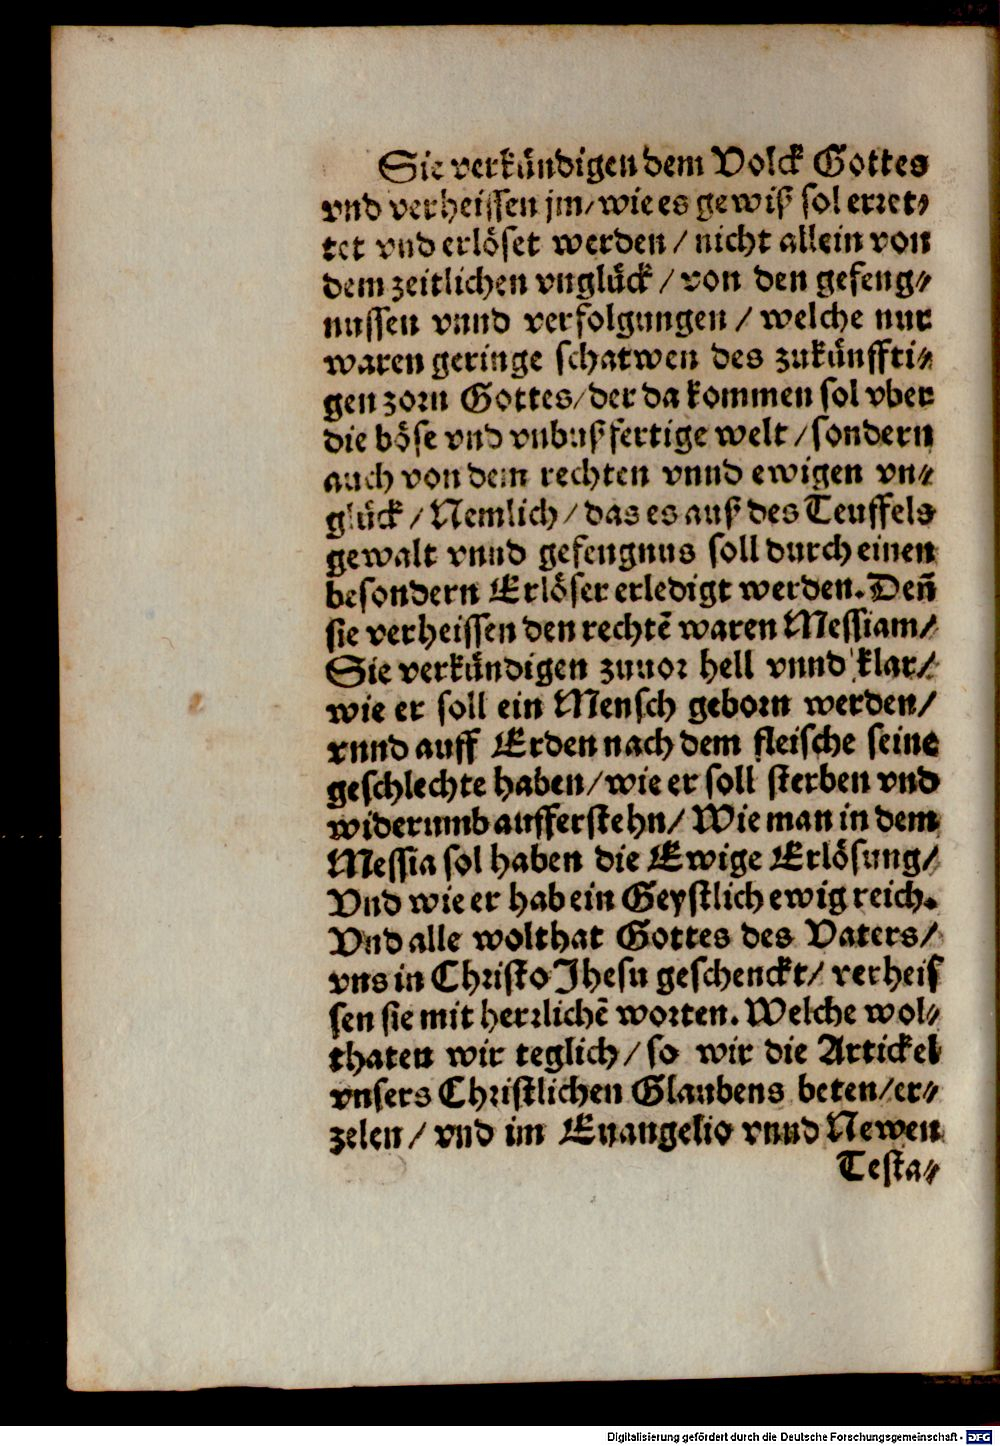 Sie verkündigen dem Volck Gottes
vnd verheissen jm/ wie es gewiß sol erret⸗
tet vnd erlöset werden / nicht allein von
dem zeitlichen vnglück / von den gefeng⸗
nussen vnnd verfolgungen / welche nur
waren geringe schatwen des zukünffti⸗
gen zorn Gottes/ der da kommen sol vber
die böse vnd vnbußfertige welt / sondern
auch von dem rechten vnnd ewigen vn⸗
glück / Nemlich / das es auß des Teuffels
gewalt vnnd gefengnus soll durch einen
besondern Erlöser erledigt werden. Deñ
sie verheissen den rechtē waren Messiam/
Sie verkündigen zuuor hell vnnd klar/
wie er soll ein Mensch geborn werden/
vnnd auff Erden nach dem fleische seine
geschlechte haben/ wie er soll sterben vnd
widerumb aufferstehn/ Wie man in dem
Messia sol haben die Ewige Erlösung/
Vnd wie er hab ein Geystlich ewig reich.
Vnd alle wolthat Gottes des Vaters/
vns in Christo Jhesu geschenckt/ verheis
sen sie mit herrlichē worten. Welche wol⸗
thaten wir teglich / so wir die Artickel
vnsers Christlichen Glaubens beten/ er⸗
zelen / vnd im Euangelio vnnd Newen
Testa⸗
Digitalisierung gefördert durch die Deutsche Forschungsgemeinschaft - DFG